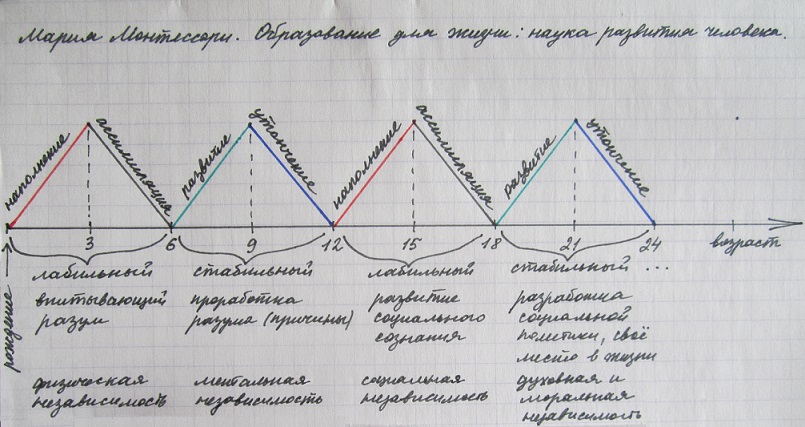 Мария Монтессори. Образование для жизни: наука развития человека.
наполнение
ассимиляция
развитие
утончение
наполнение
ассимиляция
развитие
утончение
3 6 9 12 15 18 21 24 возраст
рождение
лабильный
впитывающий
разум
физическая
независимость
стабильный
проработка
разума (причины)
ментальная
независимость
лабильный
развитие
социального
сознания
социальная
независимость
стабильный ...
разработка
социальной
политики, своё
место в жизни
духовная и
моральная
независимость